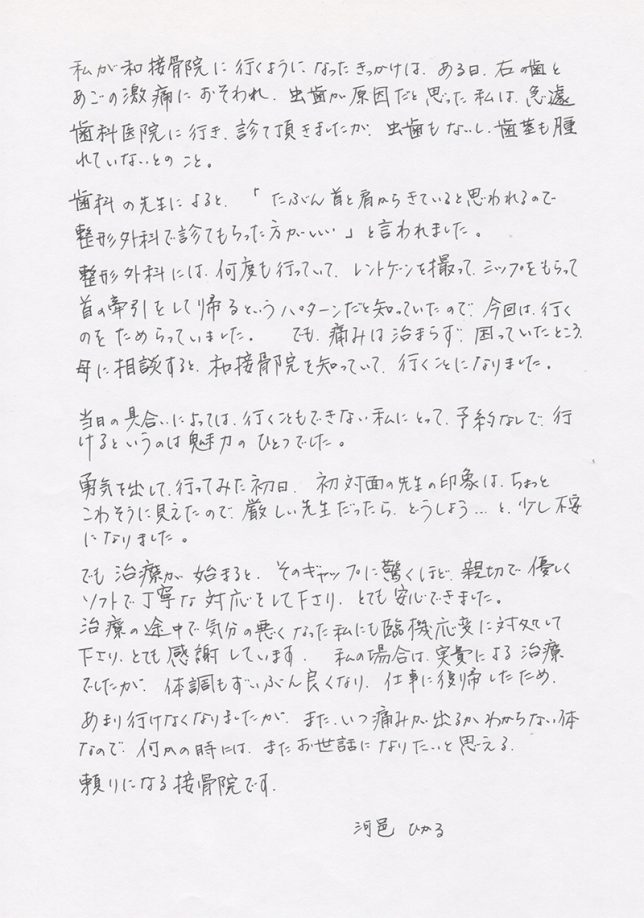 私が和接骨院に行くようになったきっかけは、ある日、右の歯と
あごの激痛におそわれ、虫歯が原因だと思った私は、急遽
歯科医院に行き、診て頂きましたが、虫歯もないし、歯茎も腫
れていないとのこと。
歯科の先生によると、「たぶん首と肩からきていると思われるので
整形外科で診てもらった方がいい」と言われました。
整形外科には、何度も行っていて、レントゲンを撮って、シップをもらって
首の牽引をして帰るというパターンだと知っていたので、今回は、行く
のをためらっていました。 でも、痛みは治まらず、困っていたところ、
母に相談すると、和接骨院を知っていて、行くことになりました。
当日の具合いによっては、行くこともできない私にとって、予約なしで、行
けるというのは魅力のひとつでした。
勇気を出して、行ってみた初日、初対面の先生の印象は、ちょっと
こわそうに見えたので、厳しい先生だったら、どうしよう…と、少し不安
になりました。
でも治療が始まると、そのギャップに驚くほど、親切で優しく
ソフトで丁寧な対応をして下さり、とても安心できました。
治療の途中で気分の悪くなった私にも臨機応変に対処して
下さり、とても感謝しています。 私の場合は、実費による治療
でしたが、体調もずいぶん良くなり、仕事に復帰したため、
あまり行けなくなりましたが、また、いつ痛みが出るかわからない体
なので、何かの時には、またお世話になりたいと思える、
頼りになる接骨院です。
河邑 ひかる